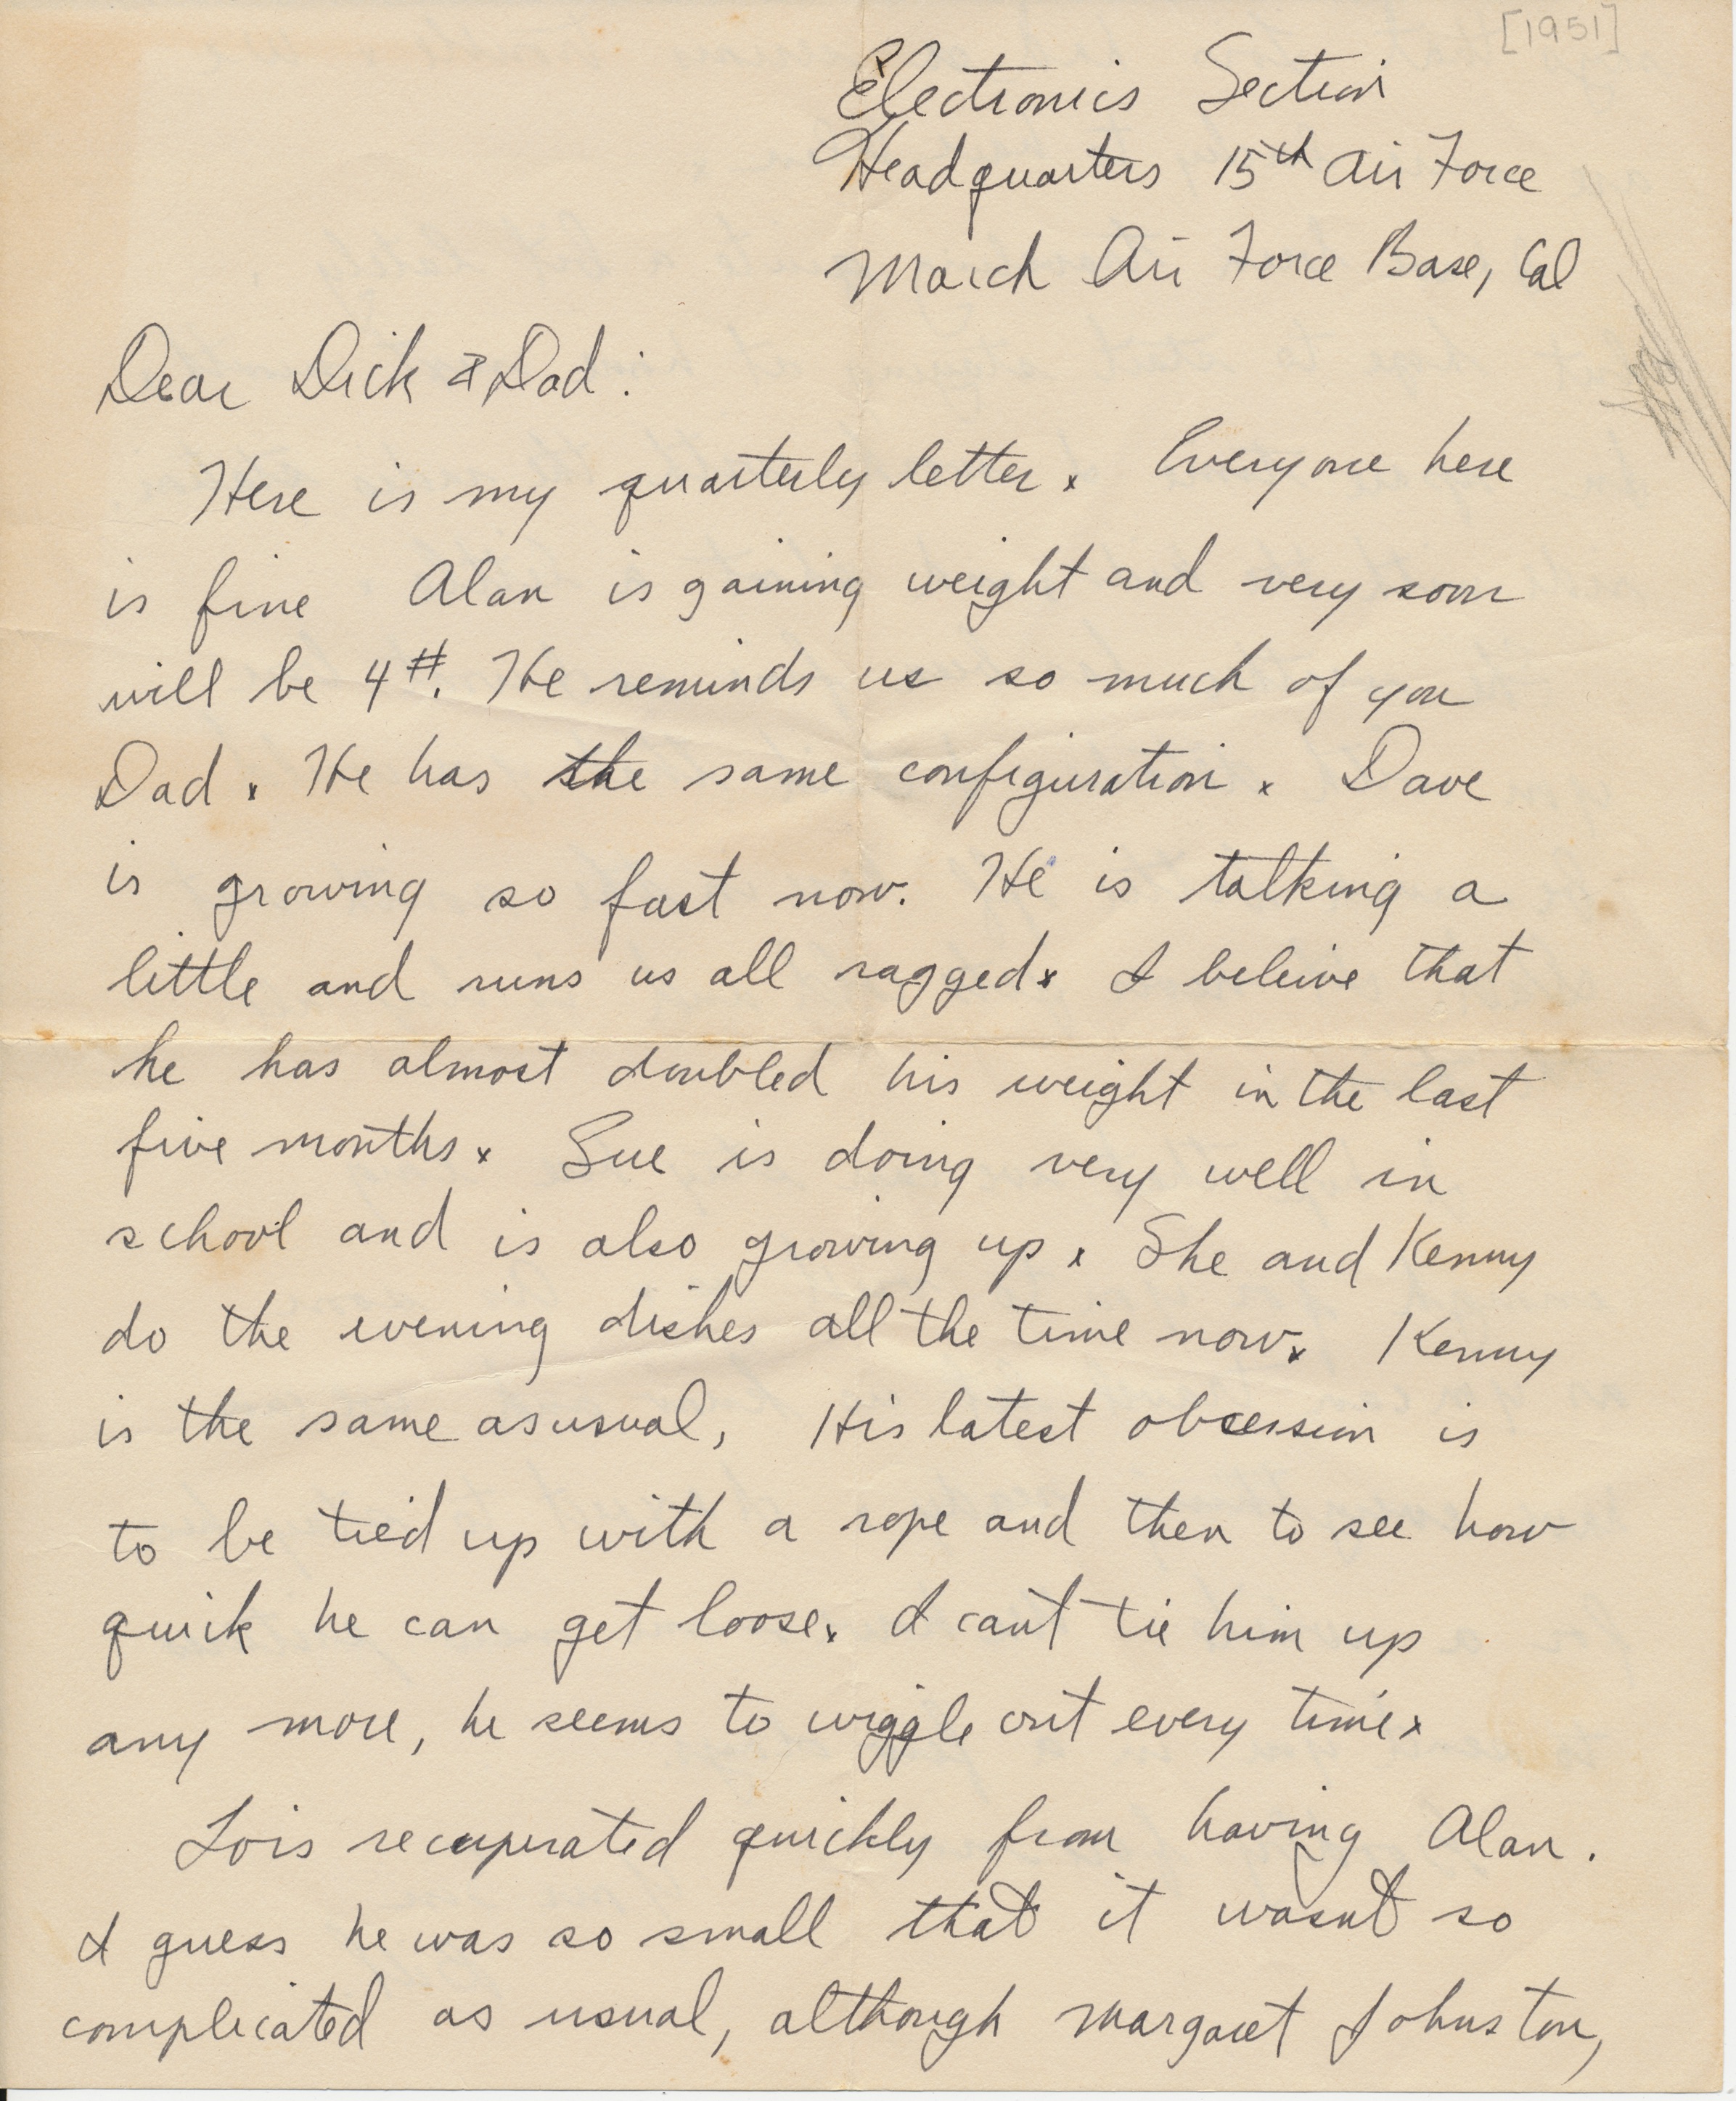 [1951]
Electronics Section
Headquarters 15th Air Force
March Air Force Base, Cal
Dear Dick & Dad:
Here is my quarterly letter x Everyone here
is fine Alan is gaining weight and very soon
will be 4#. He reminds us so much of you
Dad x He has the same configuration x Dave
is growing so fast now. He is talking a
little and runs us all ragged x I beleive that
he has almost doubled his weight in the last
five months x Sue is doing very well in
school and is also growing up x She and Kenny
do the evening dishes all the time now x Kenny
is the same as usual, His latest obsession is
to be tied up with a rope and then to see how
quick he can get loose x I can't tie him up
any more, he seems to wiggle out every time x
Lois recuperated quickly from having Alan.
I guess he was so small that it wasnt so
complicated as usual, although Margaret Johnston,